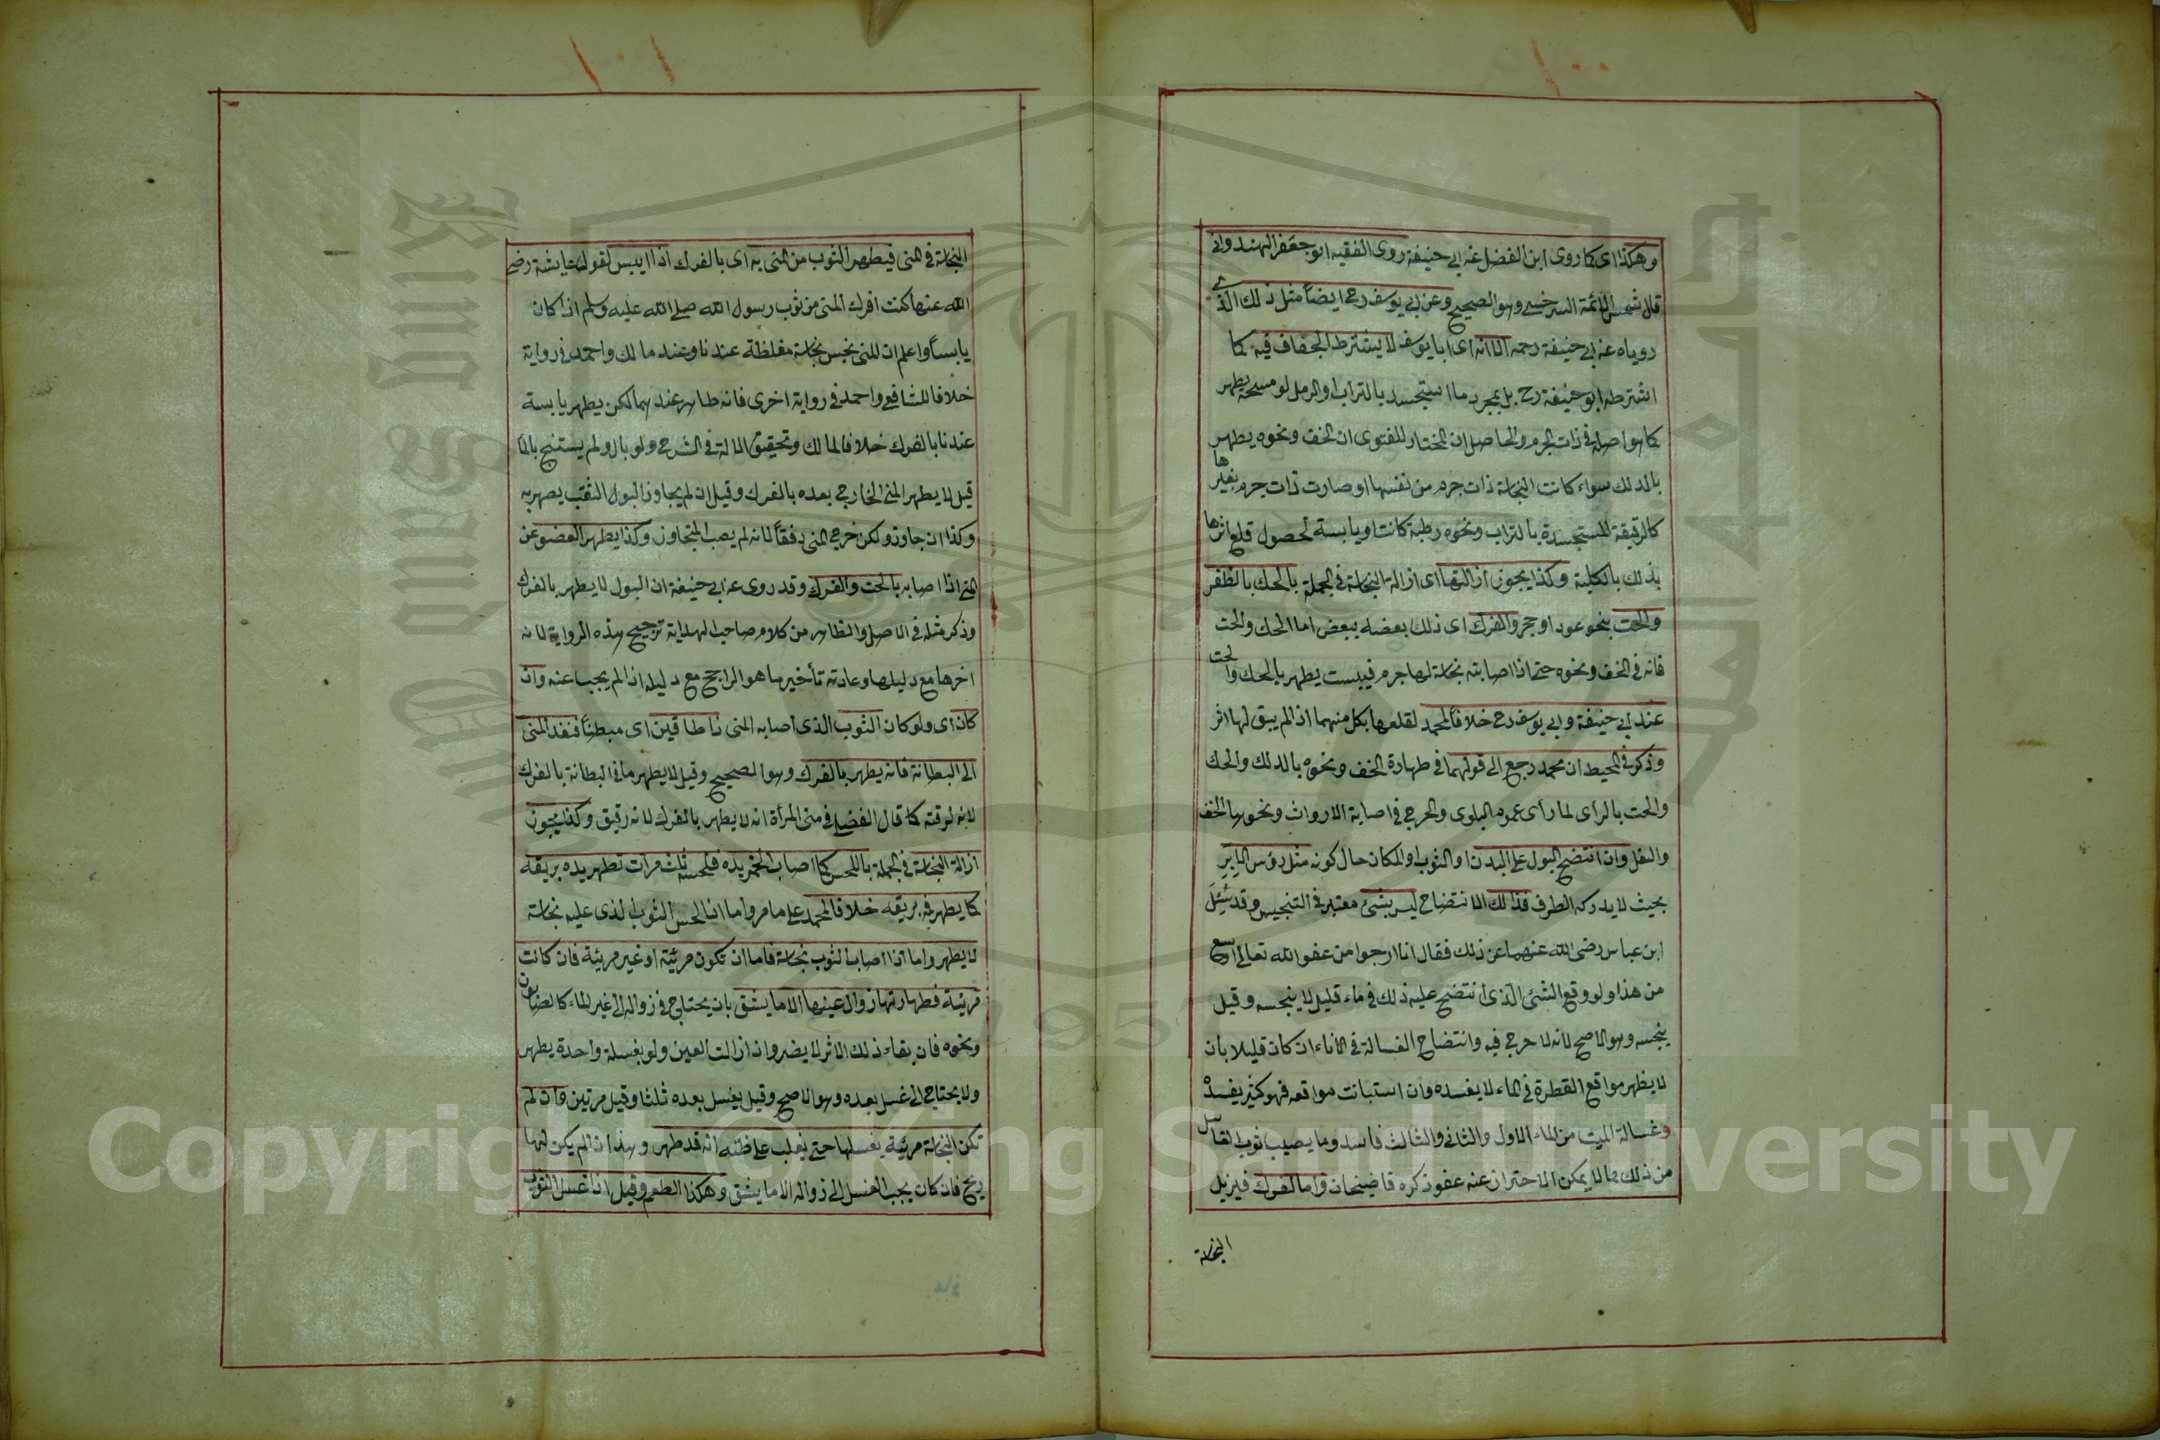 ١٠٠
وهكذا اى كما روى ابن الفضل عن ابى حنيفة روى الفقيه ابو جعفر الهندوانى
قال شمس الائمة السرخسى وهو الصحيح وعن ابى يوسف رح ايضاً مثل ذلك الذى
رويناه عن ابى حنيفة رحمه الا انه اى ابا يوسف لا يشترط الجفاف فيه كما
اشترطه ابو حنيفة رح بل بمجرد ما استجسد بالتراب او الرمل لو مسحه يطهر
كما هو اصله فى ذات الجرم والحاصل ان المختار للفتوى ان الخف ونحوه يطهر
بالدلك سواء كانت النجاسة ذات جرم من نفسها او صارت ذات جرم بغيرها
كالرقيقة المستجسدة بالتراب ونحوه رطبة كانت او يابسة لحصول قلع اثرها
بذلك بالكلية وكذا يجوز ازالتها اى ازالة النجاسة فى الجملة بالحك بالظفر
والحت بنحو عود او حجر والفرك اى دلك بعضه ببعض اما الحك والحت
فانه فى الخف ونحوه حتى اذا اصابته نجاسة لها جرم فيبست يطهر بالحك والحت
عند ابى حنيفة وابى يوسف رح خلافاً لمحمد لقلعها بكل منهما اذ لم يبق لها اثر
وذكر فى المحيط ان محمد رجع الى قولهما فى طهارة الخف ونحوه بالدلك والحك
والحت بالراى لما رأى عموم البلوى والحرج فى اصابة الارواث ونحوها الخف
والنعل وان انتضح البول على البدن او الثوب او المكان حال كونه مثل رؤس الابر
بحيث لا يدركه الطرف فذلك الانتضاح ليس بشئ معتبر فى التنجيس وقد سُئِلَ
ابن عباس رضى الله عنهما عن ذلك فقال انا ارجوا من عفو الله تعالى اوسع
من هذا ولو وقع الشئ الذى انتضح عليه ذلك فى ماء قليل لا ينجسه وقيل
ينجسه وهو الاصح لانه لا حرج فيه وانتضاح الغسالة فى الاناء ان كان قليلا بان
لا يظهر مواقع القطرة فى الماء لا يفسده وان استبانت مواقعه فهو كثير يفسده
وغسالة الميت من الماء الاول والثانى والثالث فاسد وما يصيب ثوب الغاسل
من ذلك مما لا يمكن الاحتراز عنه عفو ذكره قاضيخان واما الفرك فيزيل
النجاسة
١٠١
النجاسة فى المنى فيطهر الثوب من المنى به اى بالفرك اذا ايبس لقول عايشة رضى
الله عنها كنت افرك المنى من ثوب رسول الله صلى الله عليه وسلم اذا كان
يابساً واعلم ان المنى نجس نجاسة مغلظة عندنا وعند مالك واحمد فى رواية
خلافا للشافعى واحمد فى رواية اخرى فانه طاهر عندهما لكن يطهر يابسه
عندنا بالفرك خلافا لمالك وتحقيق المسالة فى الشرح ولو بال ولم يستنج بالماء
قيل لا يطهر المنى الخارج بعده بالفرك وقيل ان لم يجاوز البول الثقب يطهر به
وكذا ان جاوز ولكن خرج المنى دفقاً لانه لم يصب المتجاوز وكذا يطهر العضو عن
المنى اذا اصابه بالحت والفرك وقد روى عن ابى حنيفة ان البول لا يطهر بالفرك
وذكر مثله فى الاصل والظاهر من كلام صاحب الهداية ترجيح هذه الرواية لانه
اخرها مع دليلها وعادته تأخير ما هو الراجح مع دليله اذا لم يجب عنه وان
كان اى ولو كان الثوب الذى اصابه المنى ذا طاقين اى مبطناً فنفذ المنى
الى البطانة فانه يطهر بالفرك وهو الصحيح وقيل لا يطهر ما فى البطانة بالفرك
لانه لرقته كما قال الفضلى فى منى المرأة انه لا يطهر بالفرك لانه رقيق وكذا يجوز
ازالة النجاسة فى الجملة باللحس كما اصاب الخمر يده فلحسه ثلث مرات تطهر يده بريقه
كما يطهر فمه بريقه خلافا لمحمد على ما مر واما اذا لحس الثوب الذى عليه نجاسة
لا يطهر واما اذا اصاب الثوب نجاسة فاما ان تكون مرئية او غير مرئية فان كانت
مرئية فطهارتها زوال عينها الا ما يشق بان يحتاج فى زواله الى غير الماء كالصابون
ونحوه فان بقاء ذلك الاثر لا يضر وان ازالت العين ولو بغسلة واحدة يطهر
ولا يحتاج الى غسل بعده وهو الاصح وقيل يغسل بعده ثلثا وقيل مرتين وان لم
تكن النجاسة مرئية يغسلها حتى يغلب على ظنه انه قد طهر وهذا اذا لم يكن لها
ريح فان كان يجب الغسل الى زواله الا ما يشق وهكذا الطعم وقيل اذا غسل الثوب
Copyright © King Saud University
1957